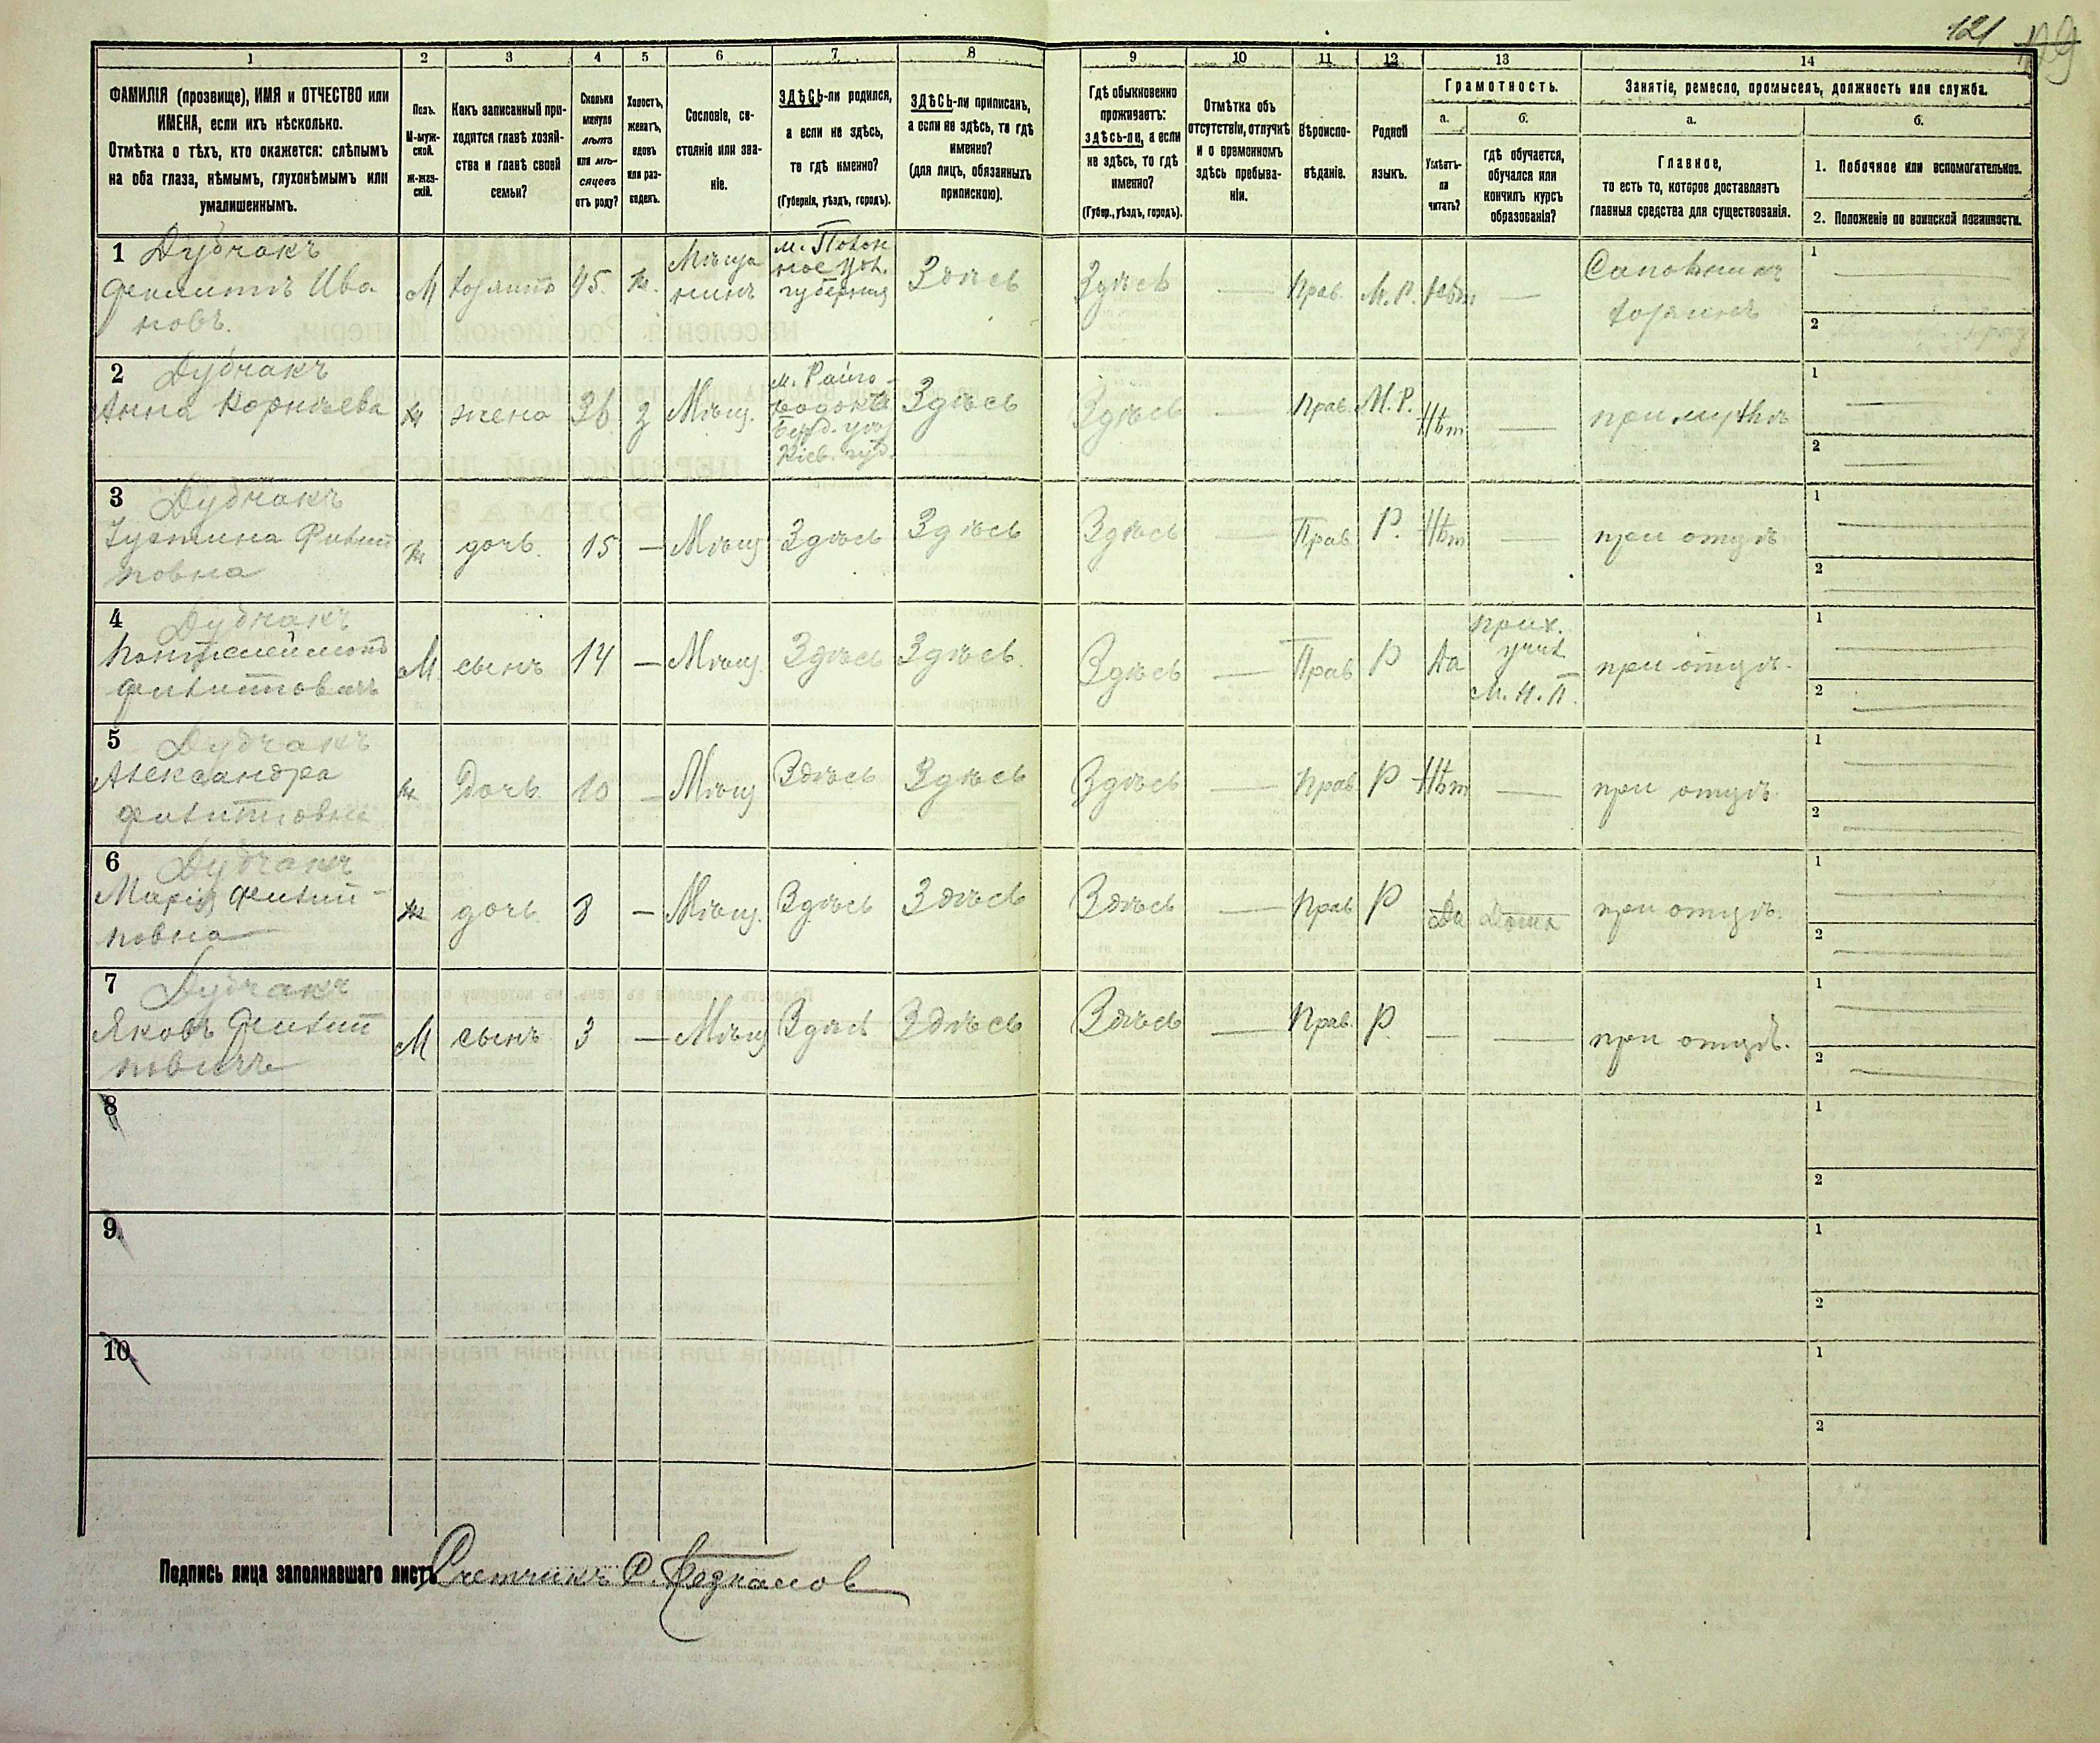 121
1 2 3 4 5 6 7 8 9 10 11 12 13 14
ФАМИЛІЯ (прозвище), ИМЯ и ОТЧЕСТВО или
ИМЕНА, если ихъ нѣсколько.
Отмѣтка о тѣхъ, кто окажется: слѣпымъ
на оба глаза, нѣмымъ, глухонѣмымъ или
умалишеннымъ.
Полъ.
М-муж-
ской.
ж-жен-
скій.
Какъ записанный при-
ходится главѣ хозяй-
ства и главѣ своей
семьи?
Сколько
минуло
лѣтъ
или мѣ-
сяцевъ
отъ роду?
Холостъ,
женатъ,
вдовъ
или раз-
веденъ.
Сословіе, со-
стояніе или зва-
ніе.
ЗДѢСЬ-ли родился,
а если не здѣсь,
то гдѣ именно?
(Губернія, уѣздъ, городъ).
ЗДѢСЬ-ли приписанъ,
а если не здѣсь, то гдѣ
именно?
(для лицъ, обязанныхъ
припискою).
Гдѣ обыкновенно
проживаетъ:
здѣсь-ли, а если
не здѣсь, то гдѣ
именно?
(Губер., уѣздъ, городъ).
Отмѣтка объ
отсутствіи, отлучкѣ
и о временномъ
здѣсь пребыва-
ніи.
Вѣроиспо-
вѣданіе.
Родной
языкъ.
Грамотность.
а. б.
Умѣетъ-
ли
читать?
гдѣ обучается,
обучался или
кончилъ курсъ
образованія?
Занятіе, ремесло, промыселъ, должность или служба.
а. б.
Главное,
то есть то, которое доставляетъ
главныя средства для существованія.
1. Побочное или вспомогательное.
2. Положеніе по воинской повинности.
1 Дубчакъ
Филиппъ Ива
новъ.
М хозяинъ 45. ж. Мѣща
нинъ
губерния
Здѣсь Здѣсь — Прав. М.Р. Нѣт —
Сапожникъ
хозяинъ
1 —
2
2 Дубчакъ
Анна Корнѣева
ж жена 36 з Мѣщ.
Кіев. губ.
Здѣсь Здѣсь — Прав. М.Р. Нѣт — при мужѣ
1 —
2 —
3 Дубчакъ
Іустина Филип
повна
ж дочь. 15 — Мѣщ Здѣсь Здѣсь Здѣсь — Прав. Р. Нѣт — при отцѣ
1 —
2 —
4 Дубчакъ
Пантелеймонъ
Филипповичъ
М. сынъ 14 — Мѣщ. Здѣсь Здѣсь. Здѣсь — Прав Р Да
прих.
учил
М.Н.П.
при отцѣ.
1 —
2 —
5 Дубчакъ
Александра
Филипповна
ж Дочь. 10 — Мѣщ Здѣсь Здѣсь Здѣсь — Прав. Р Нѣт — при отцѣ.
1 —
2 —
6 Дубчакъ
Марія Филип-
повна
ж дочь. 8 — Мѣщ. Здѣсь Здѣсь Здѣсь — Прав Р Да Дома при отцѣ.
1 —
2 —
7 Дубчакъ
Яковъ Филип
повичъ
М сынъ 3 — Мѣщ Здѣсь Здѣсь Здѣсь — Прав. Р. — — при отцѣ.
1 —
2 —
8
1
2
9
1
2
10
1
2
Подпись лица заполнявшаго листъ Счетчикъ